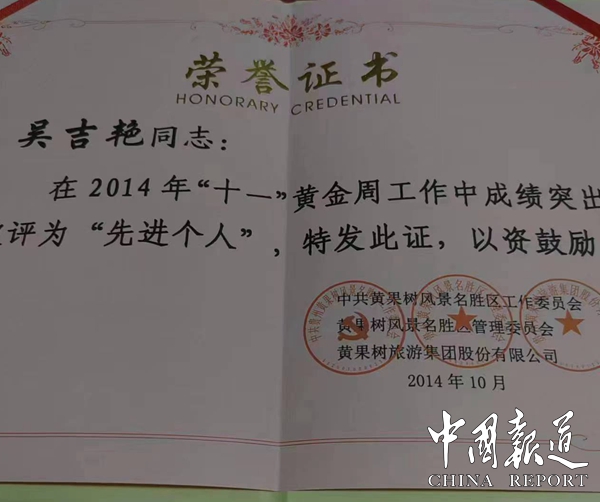 荣誉证书
HONORARY CREDENTIAL
吴吉艳同志：
在2014年“十一”黄金周工作中成绩突出
评为“先进个人”，特发此证，以资鼓励
中共黄果树风景名胜区工作委员会
黄果树风景名胜区管理委员会
黄果树旅游集团股份有限公司
2014年10月
中國報道
CHINA REPORT